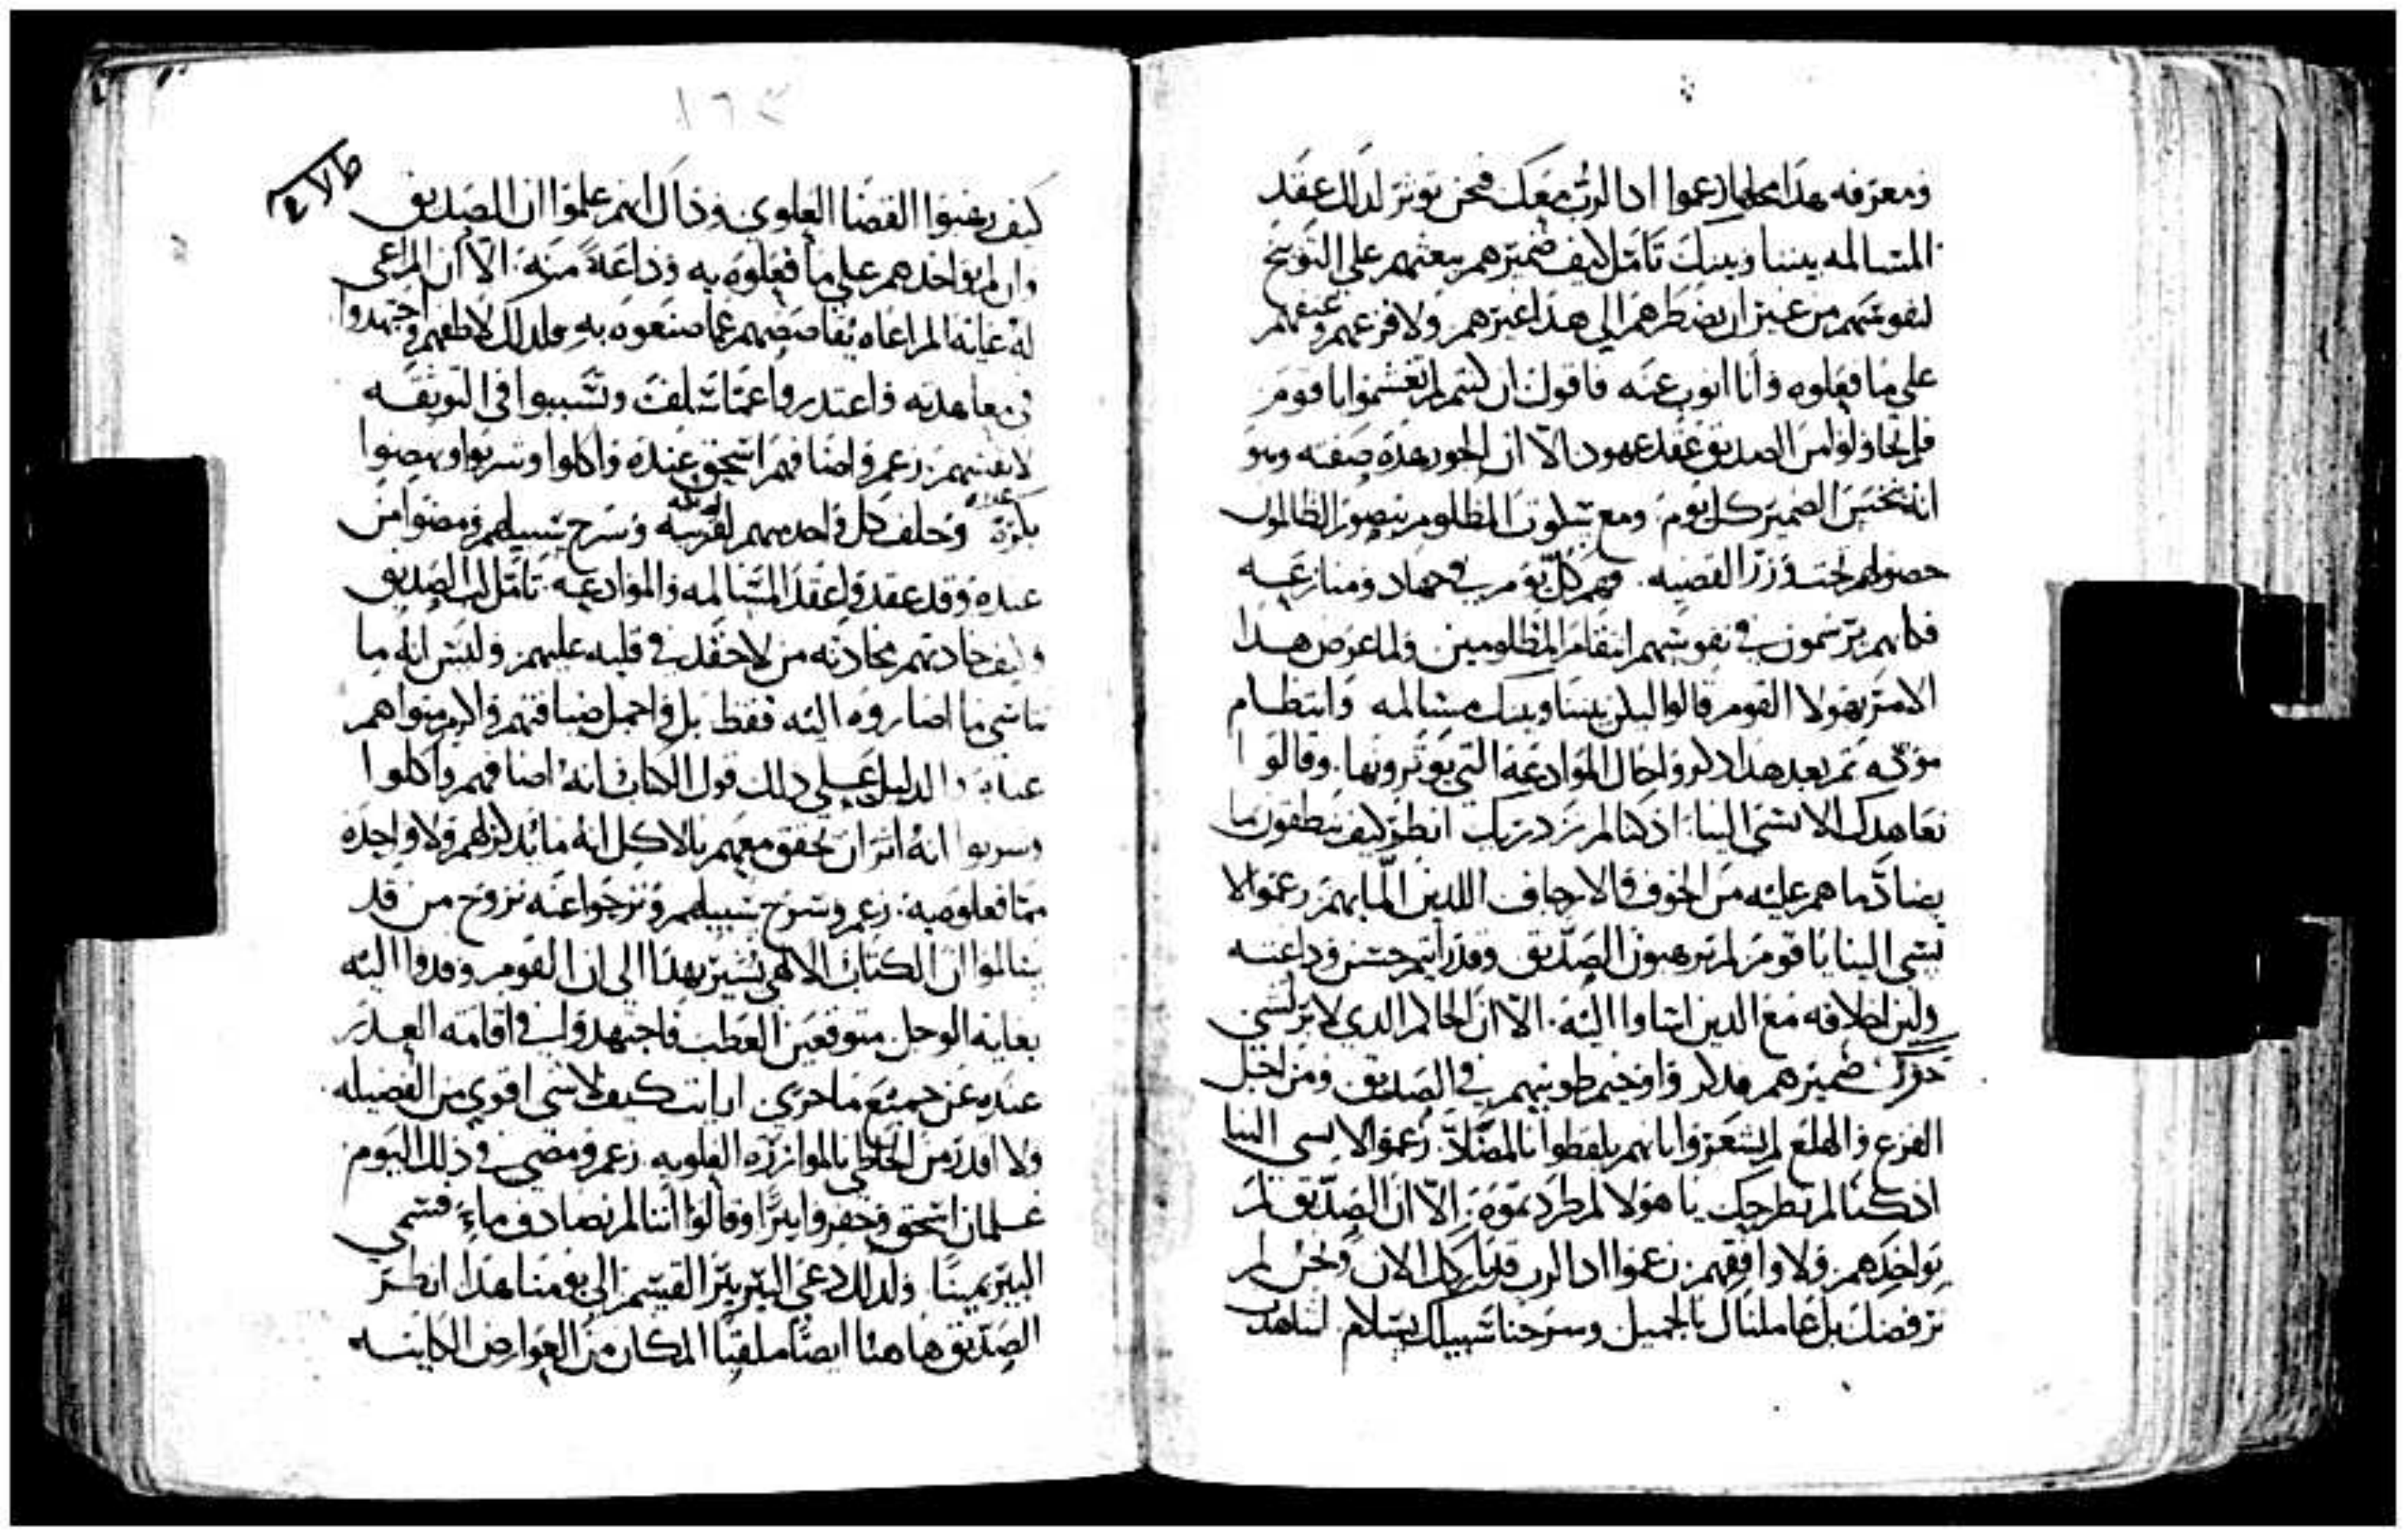 ومعرفه هذا محلها زعموا اذ الرب معك فنحن نوثر لذلك عقد
المسالمه بيننا وبينك تامل كيف ضميرهم يبعثهم علي التوبيخ
لنفوسهم من غير ان يضطرهم الي هذا غيرهم ولا قرعهم وعنفهم
علي ما فعلوه وانا انوب عنه فاقول ان كنتم لم تغشموا يا قوم
فلم تحاولوا من الصديق عقد عهود الا ان الجور هذه صفته وهو
انه ينخس الضمير كل يوم ومع سكوت المظلوم يتصور الظالمون
حصولهم تحت وزر القضيه فهم كل يوم في جهاد ومنازعه
فكانهم يترسمون في نفوسهم انتقام المظلومين ولما عرض هذا
الامر لهولا القوم قالوا ليكن بيننا وبينك مسالمه وانتظام
موده ثم بعد هذا ذكروا حال الموادعه التي يوثرونها وقالوا
نعاهدك الا تسي الينا اذ كنا لم نزدريك انظر كيف ينطقون بما
يضاد ما هم عليه من الخوف والارجاف اللذين الما بهم زعموا لا
تسي الينا يا قوم لم ترهبون الصديق وقد رايتم حسن وداعته
ولين اخلاقه مع الذين اساوا اليه الا ان الحاكم الذي لا يرتشي
حرك ضميرهم فذكروا وخيم طويتهم في الصديق ومن اجل
الفزع والهلع لم يشعروا بانهم يلفظوا بالمضاد زعموا لا تسي الينا
اذ كنا لم نطرحك يا هولا لم طردتموه الا ان الصديق لم
يواخذهم ولا واقفهم زعموا اذ الرب قد بارك الان ونحن لم
نرفضك بل عاملناك بالجميل وسرحنا سبيلك بسلام لنعاهدك
١٦٣
كيف رهبوا القضا العلوي وذاك انهم علموا ان الصديق
وان لم يواخذهم علي ما فعلوه به وداعة منه الا ان المراعي
له غاية المراعاه يقاصصهم عما صنعوه به ولذلك لاطفهم واجتهدوا
في معاهدته واعتذروا عما سلف وتسببوا في التوثقه
لانفسهم زعم واضافهم اسحق عنده واكلوا وشربوا ونهضوا
بكرة وحلف كل واحد منهم لقريبه وسرح سبيلهم ومضوا من
عنده وقد عقد وا عقد المسالمه والموادعه تامل لب الصديق
وكيف حادثهم محادثه من لا حقد في قلبه عليهم وليس انه ما
تناسي ما اصاروه اليه فقط بل واجمل ضيافتهم واكرم مثواهم
عنده والدليل علي ذلك قول الكتاب انه اضافهم واكلوا
وشربوا انه اثر ان يحقق معهم بالاكل انه ما يذكر لهم ولا واحده
مما فعلوه به زعم وسرح سبيلهم ونزحوا عنه نزوح من قد
سالموا ان الكتاب الالهي يشير بهذا الي ان القوم وفدوا اليه
بغاية الوجل متوقعين العطب فاجتهدوا في اقامه العذر
عنده عن جميع ما جري ارايت كيف لا شي اقوي من الفضيله
ولا اقدر من الحظي بالموازره العلويه زعم ومضي في ذلك اليوم
غلمان اسحق وحفروا بيرا وقالوا اننا لم نصادف ماء فسمي
البير يمينا ولذلك دعي البير بير القسم الي يومنا هذا انظر
الصديق هاهنا ايضا ملقبا المكان من العوارض الكاينه